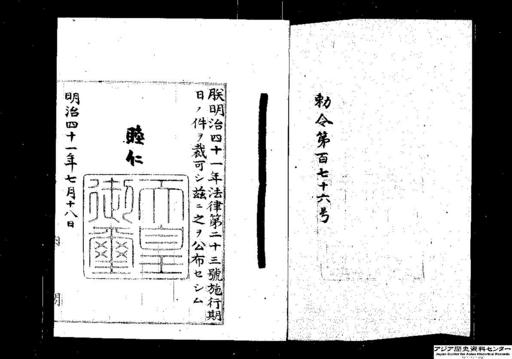 勅令第百七十六号
朕明治四十一年法律第二十三號施行期
日ノ件ヲ裁可シ茲ニ之ヲ公布セシム
睦仁
天皇
御璽
明治四十一年七月十八日
内
アジア歴史資料センター
Japan Center for Asian Historical Records